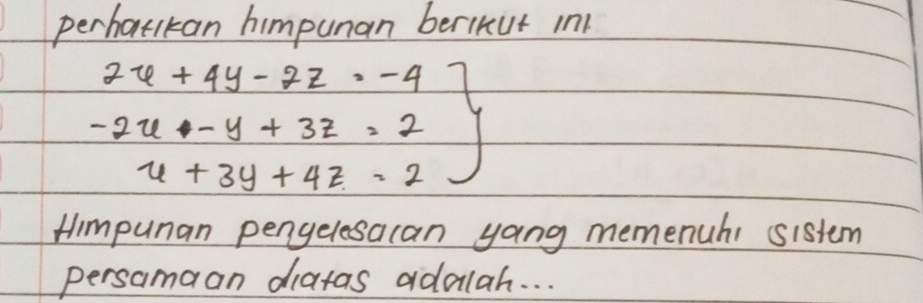 perhatikan himpunan berikut ini
2x + 4y - 2z = -4
-2x - y + 3z = 2
x + 3y + 4z = 2
Himpunan penyelesaian yang memenuhi sistem
persamaan diatas adalah...